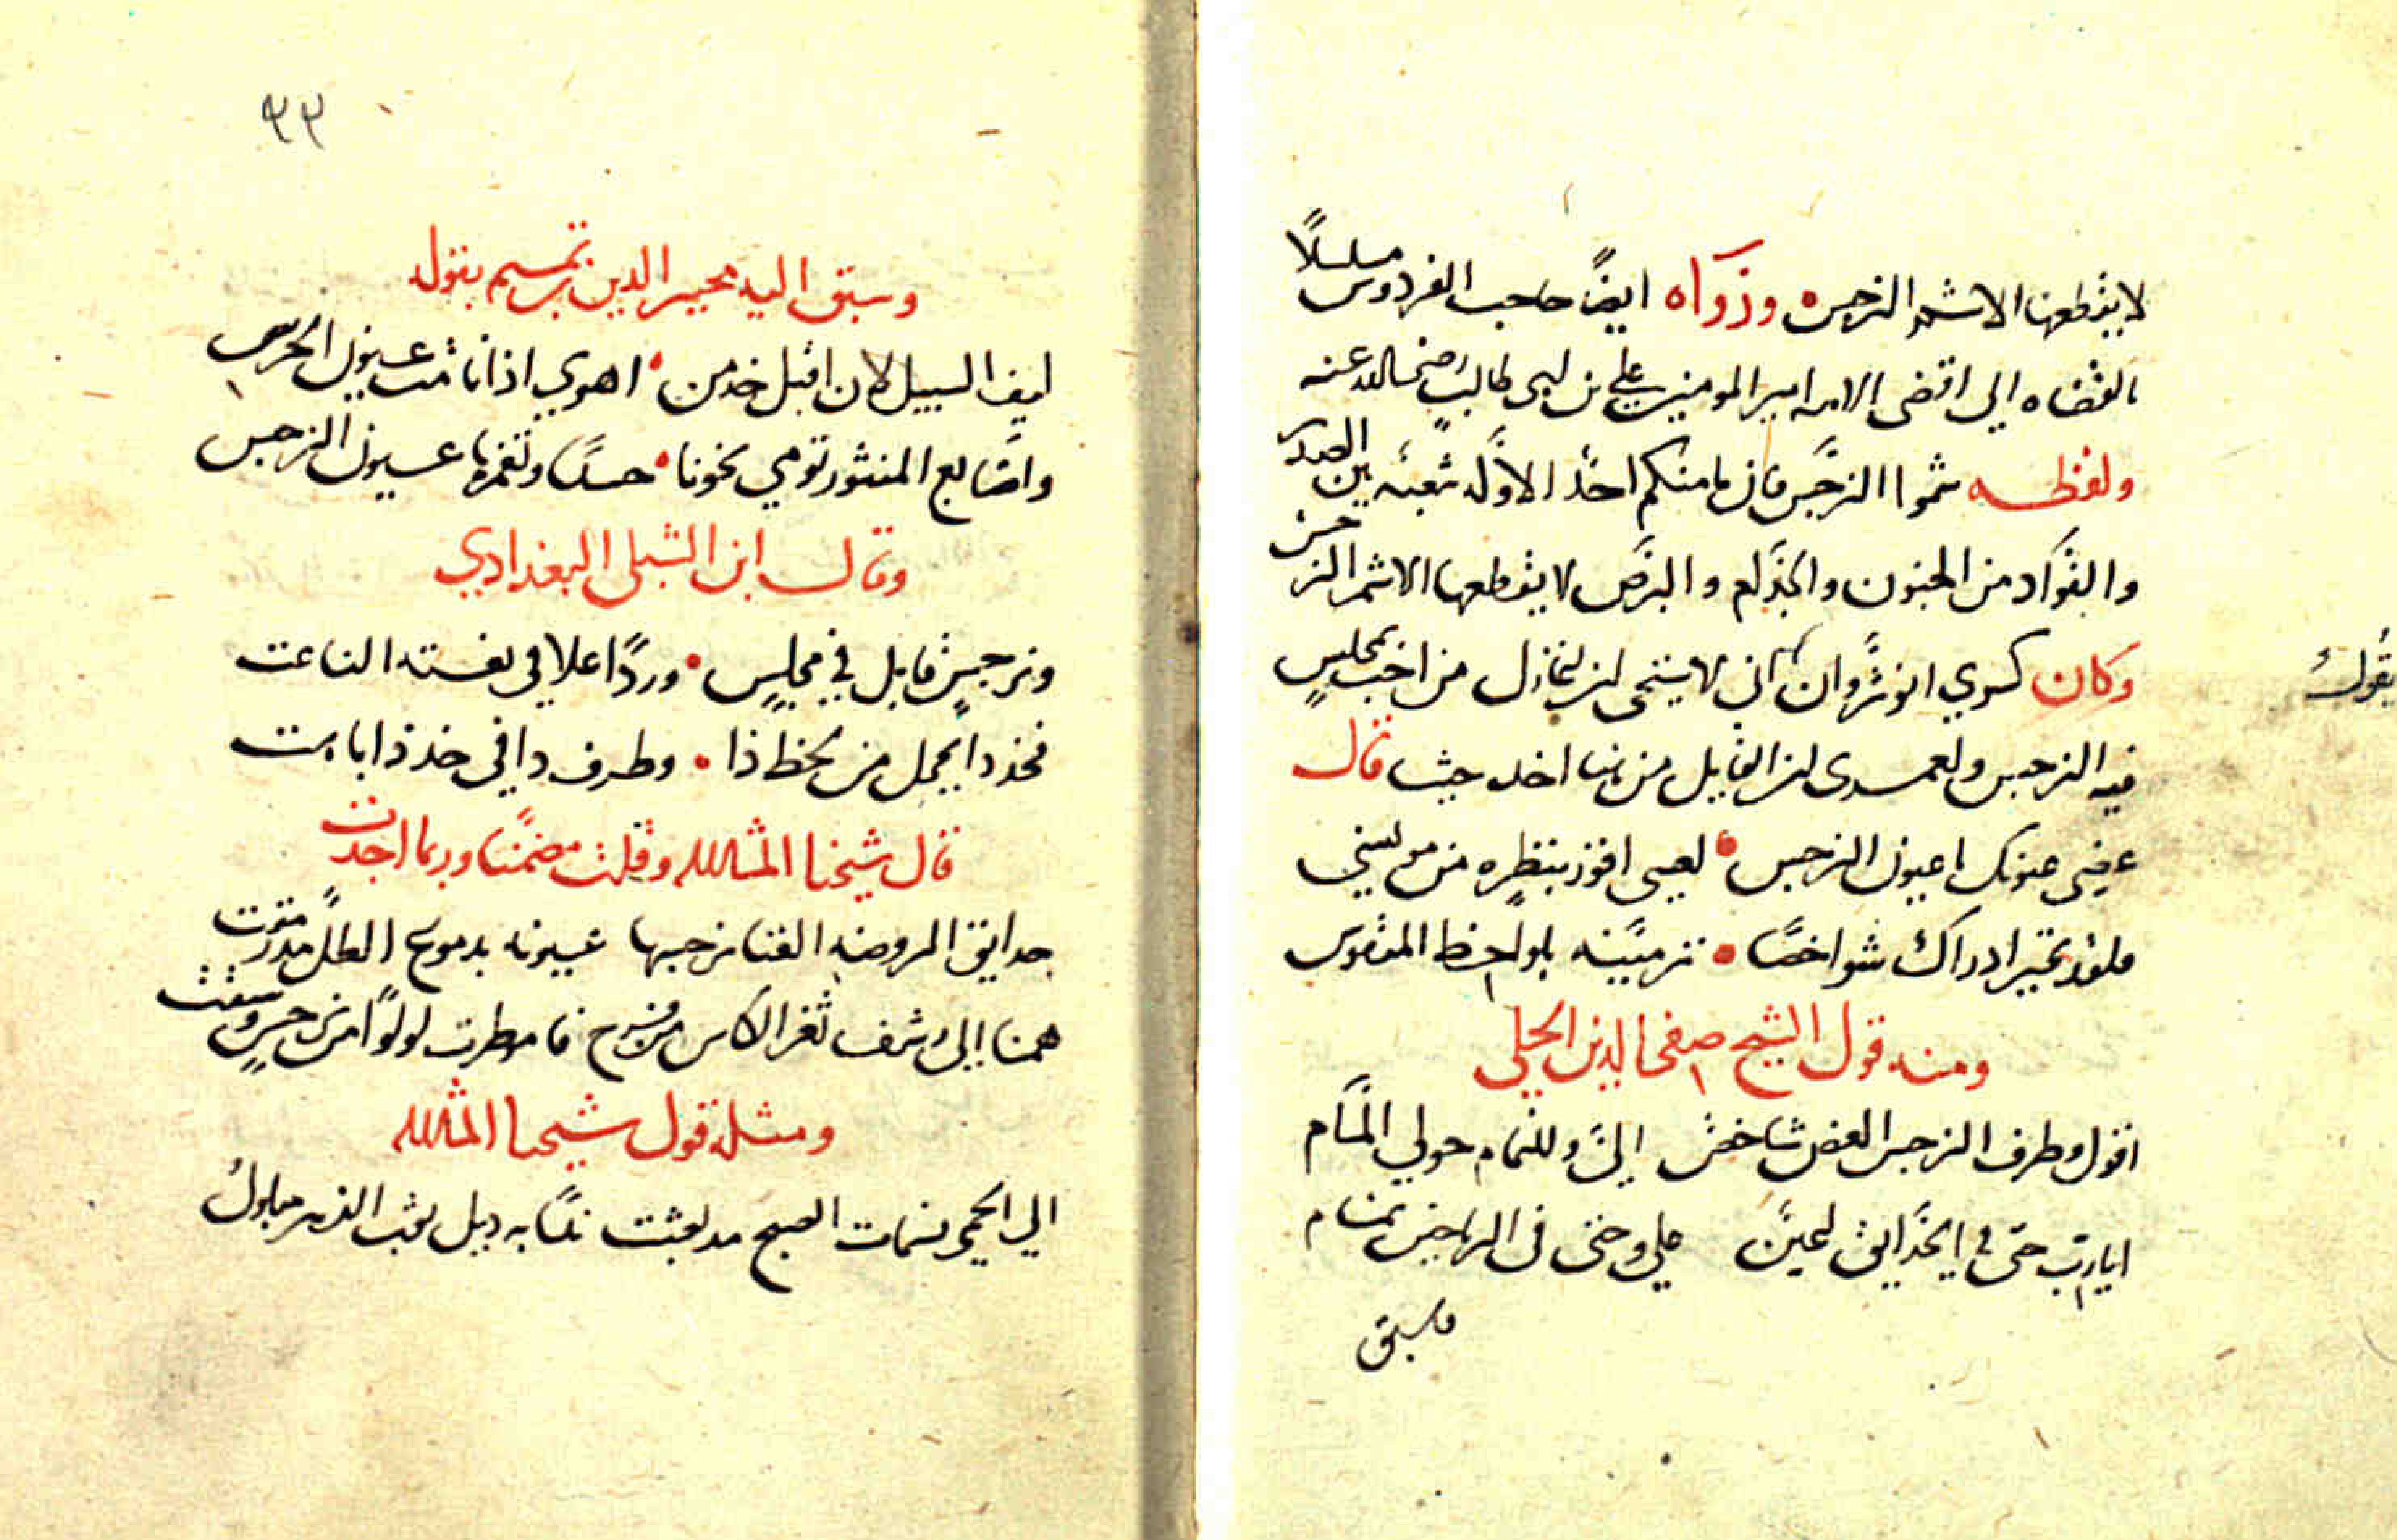 لا يقطعها الا شم النرجس ورواه ايضًا صاحب الفردوس مسلسلًا
القضاه الي اقضى الامه امير المومنين علي بن ابي طالب رضي الله عنه
ولفظه شموا النرجس فان ما منكم احد الا وله شعبه بين الصدر
والفواد من الجنون والجذام والبرص لا يقطعها الا شم النرجس
وكان كسري انوشروان اني لا ستحى ان اغازل من احب بمجلس
يقول
فيه النرجس ولعمرى ان القايل من هنا اخد حيث قال
غضى عيونك يا عيون النرجس لعلى افوز بنظره من مونسي
فلقد تحير اد راك شواخصًا ترمينه بلواحظ المتفرس
ومنه قول الشيخ صفي الدين الحلي
اقول وطرف النرجس الغض شاخص الىّ وللنمام حولي المام
ايا رب حتى في الحدايق اعين علي وحتى في الرياحين نمام
وسبق
٣٣
وسبق اليه مجير الدين بن تميم بقول
كيف السبيل لان اقبل خد من اهوي اذا نامت عيون الحرس
واصابع المنثور تومي نحونا حسدًا وتغمزها عيون النرجس
وقال ابن الشبلى البغدادي
ونرجس قابل في مجلس وردًا علا في نعته الناعت
فخد ذا يخجل من لحظ ذا وطرف ذا في خد ذا باهت
قال شيخنا امثالله وقلت مضمنًا وربما اجدت
حدايق الروضه الغنا نرجسها عيونه بدموع الطل مذ رمقت
همنا الى رشف ثغر الكاس من فرح فامطرت لولوًا من نرجس وسقت
ومثله قول شيخنا امثالله
الي الحمى نسمات الصبح مد بعثت به ذيل مبلول